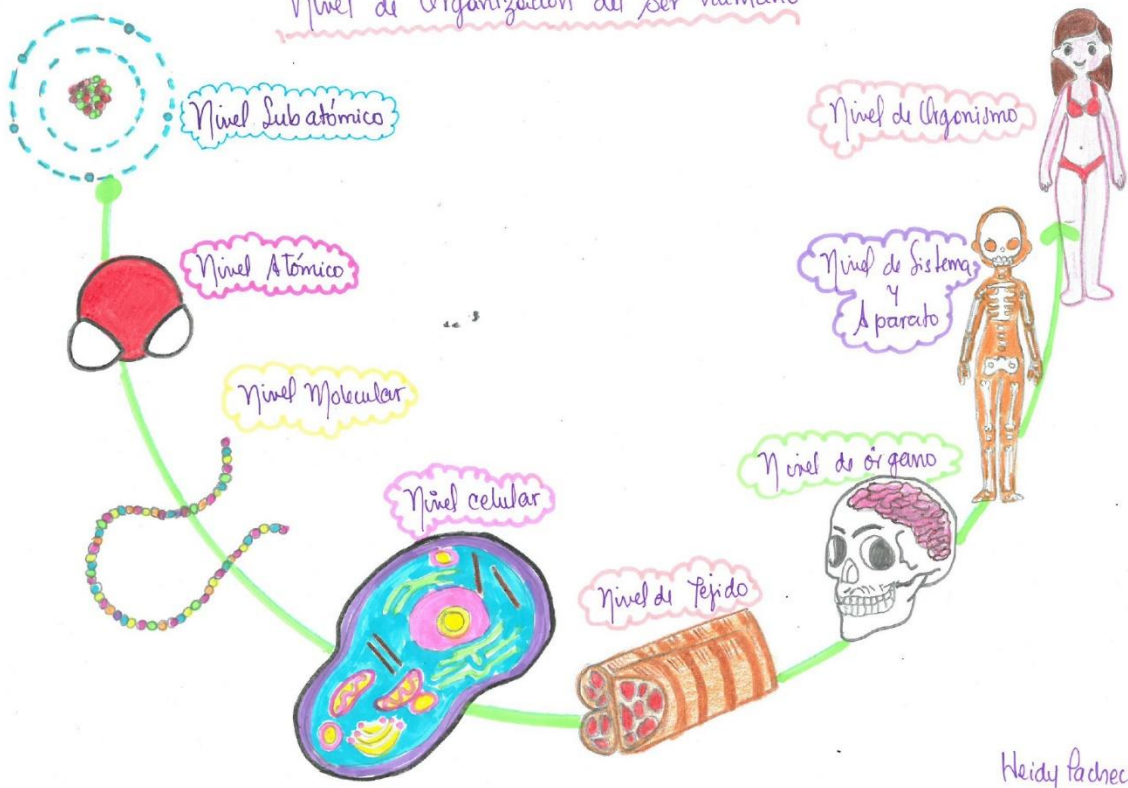 Nivel de Organización del ser humano
Nivel Subatómico
Nivel Atómico
Nivel Molecular
Nivel celular
Nivel de Tejido
Nivel de órgano
Nivel de Sistema
y
Aparato
Nivel de Organismo
Heidy Pachec